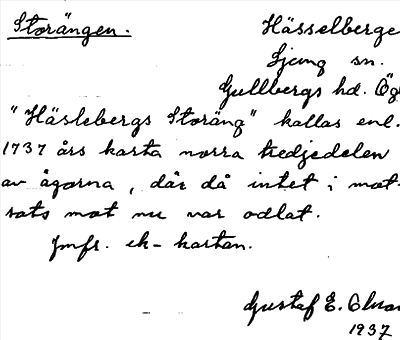 Storängen.
Hässelberge
Ljung sn.
Gullbergs hd. Ög
"Häslebergs Storäng" kallas enl.
1737 års karta norra tredjedelen
av ägorna, där då intet i mot-
sats mot nu var odlat.
Jmfr. ek-kartan.
Gustaf E.
1937